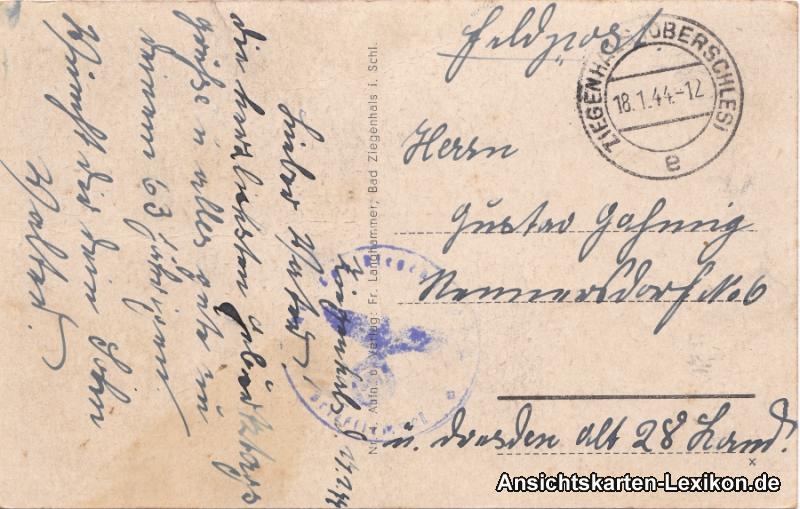 Feldpost
ZIEGENHALS (OBERSCHLES)
18.1.44-12
e
Herrn
Gustav
Rennersdorf No 6
ü. Dresden Alt 28 Land.
Nr. 4. Aufn. u. Verlag: Fr. Langhammer, Bad Ziegenhals i. Schl.
Ziegenhals, 17.1.44
Lieber Vater!
die herzlichsten Geburtstags
grüße u. alles gute zu
deinem 63 jährigen
Wünscht dir dein Sohn
Walter.
Ansichtskarten-Lexikon.de